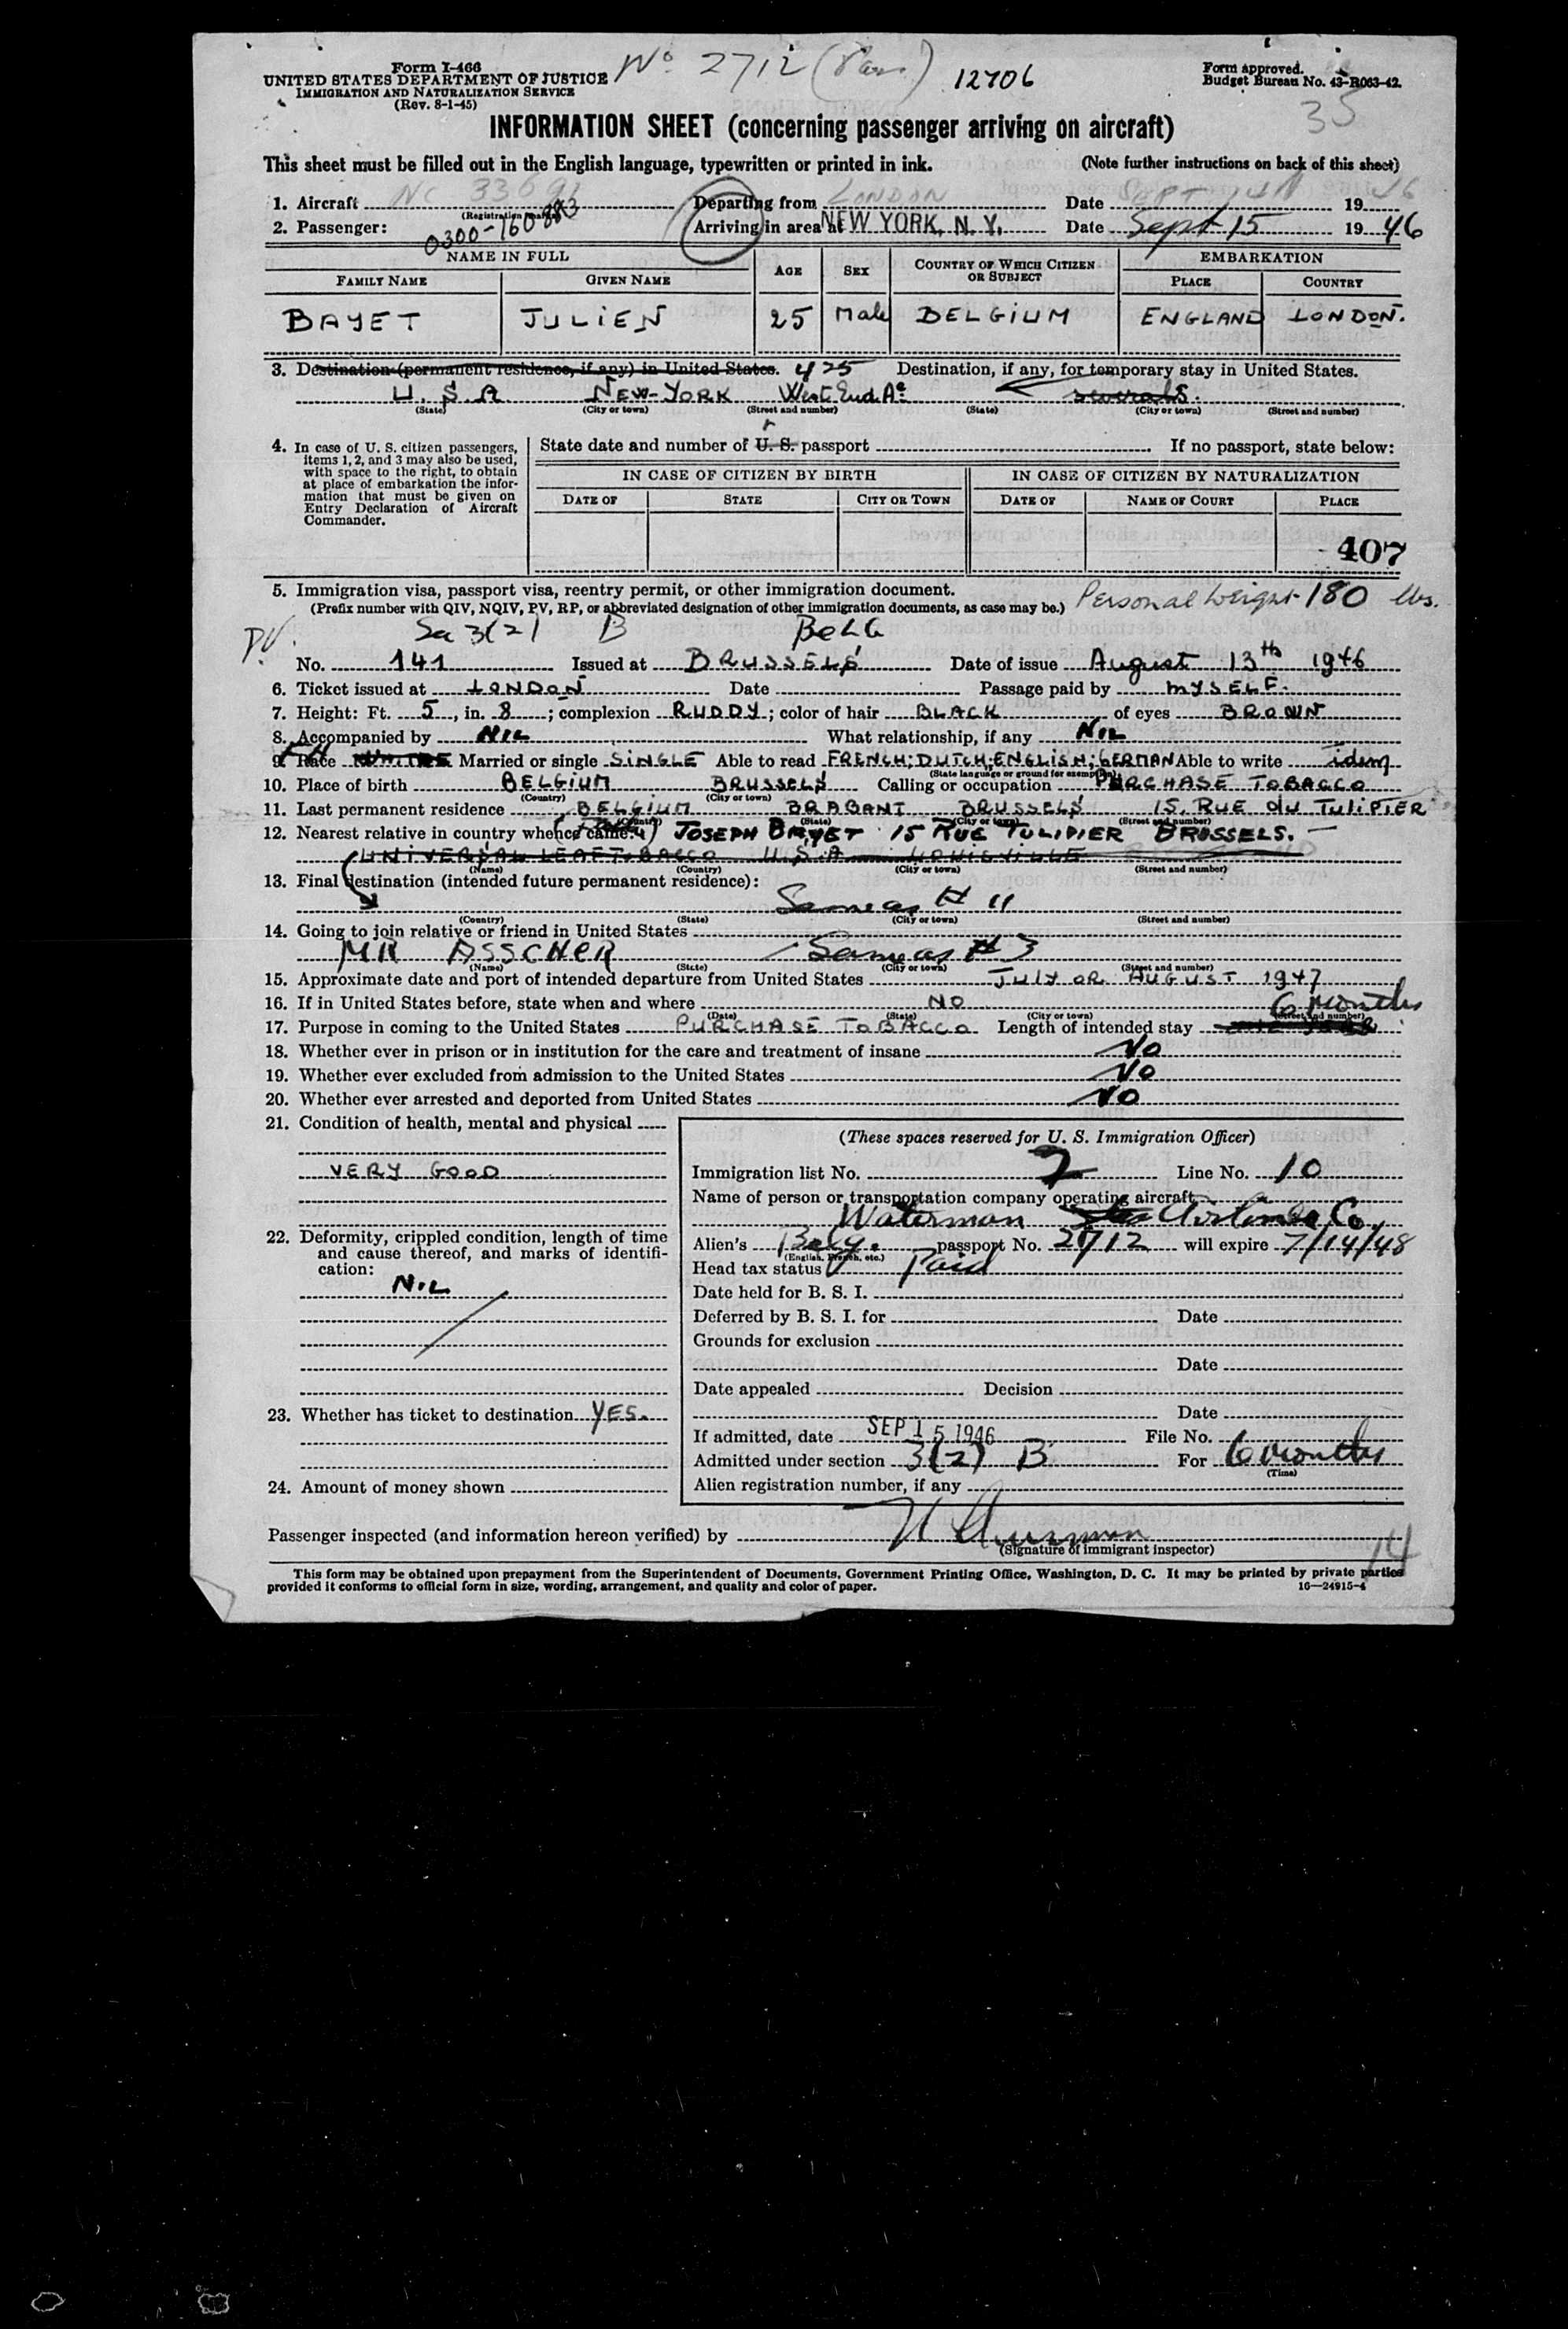 Form I-466
UNITED STATES DEPARTMENT OF JUSTICE
IMMIGRATION AND NATURALIZATION SERVICE
(Rev. 8-1-45)
No 2712 (Pass.) 12706
Form approved.
Budget Bureau No. 43-R063-42.
35
INFORMATION SHEET (concerning passenger arriving on aircraft)
This sheet must be filled out in the English language, typewritten or printed in ink. (Note further instructions on back of this sheet)
1. Aircraft NC Departing from LONDON Date SEPT 14th 1946
(Registration marks)
2. Passenger: 0300-160 Arriving in area at NEW YORK, N. Y. Date Sept 15 1946
NAME IN FULL AGE SEX COUNTRY OF WHICH CITIZEN OR SUBJECT EMBARKATION
FAMILY NAME GIVEN NAME PLACE COUNTRY
BAYET JULIEN 25 Male BELGIUM ENGLAND LONDON.
3. Destination (permanent residence, if any) in United States. 425 Destination, if any, for temporary stay in United States.
U.S.A NEW-YORK West End Ae severals.
(State) (City or town) (Street and number) (State) (City or town) (Street and number)
4. In case of U. S. citizen passengers, items 1, 2, and 3 may also be used, with space to the right, to obtain at place of embarkation the information that must be given on Entry Declaration of Aircraft Commander.
State date and number of U. S. passport If no passport, state below:
IN CASE OF CITIZEN BY BIRTH IN CASE OF CITIZEN BY NATURALIZATION
DATE OF STATE CITY OR TOWN DATE OF NAME OF COURT PLACE
407
5. Immigration visa, passport visa, reentry permit, or other immigration document.
(Prefix number with QIV, NQIV, PV, RP, or abbreviated designation of other immigration documents, as case may be.) Personal weight 180 lbs.
PV. Sec 3(2) B BELG
No. 141 Issued at BRUSSELS Date of issue August 13th 1946
6. Ticket issued at LONDON Date Passage paid by MYSELF.
7. Height: Ft. 5, in. 8; complexion RUDDY; color of hair BLACK of eyes BROWN
8. Accompanied by NIL What relationship, if any NIL
9. Race WHITE Married or single SINGLE Able to read FRENCH; DUTCH; ENGLISH; GERMAN Able to write idem
(State language or ground for exemption)
10. Place of birth BELGIUM BRUSSELS Calling or occupation PURCHASE TOBACCO
(Country) (City or town)
11. Last permanent residence BELGIUM BRABANT BRUSSELS 15, RUE DU TULIPIER
(Country) (State) (City or town) (Street and number)
12. Nearest relative in country whence came JOSEPH BAYET 15 RUE TULIPIER BRUSSELS.
UNIVERSAL LEAF TOBACCO U.S.A LOUISVILLE
(Name) (Country) (City or town) (Street and number)
13. Final destination (intended future permanent residence):
Same as # 11
(Country) (State) (City or town) (Street and number)
14. Going to join relative or friend in United States
MR ASSCHER Same as # 3
(Name) (State) (City or town) (Street and number)
15. Approximate date and port of intended departure from United States JULY OR AUGUST 1947
16. If in United States before, state when and where NO
(Date) (State) (City or town) (Street and number)
6 months
17. Purpose in coming to the United States PURCHASE TOBACCO Length of intended stay
18. Whether ever in prison or in institution for the care and treatment of insane NO
19. Whether ever excluded from admission to the United States NO
20. Whether ever arrested and deported from United States NO
21. Condition of health, mental and physical
VERY GOOD
22. Deformity, crippled condition, length of time and cause thereof, and marks of identification:
NIL
23. Whether has ticket to destination YES.
24. Amount of money shown
(These spaces reserved for U. S. Immigration Officer)
Immigration list No. 2 Line No. 10
Name of person or transportation company operating aircraft
Waterman Airlines Co.
Alien's Belg. passport No. 2712 will expire 7/14/48
(English, French, etc.)
Head tax status Paid
Date held for B. S. I.
Deferred by B. S. I. for Date
Grounds for exclusion
Date
Date appealed Decision
Date
If admitted, date SEP 15 1946 File No.
Admitted under section 3(2) B For 6 months
(Time)
Alien registration number, if any
Passenger inspected (and information hereon verified) by
(Signature of immigrant inspector)
14
This form may be obtained upon prepayment from the Superintendent of Documents, Government Printing Office, Washington, D. C. It may be printed by private parties
provided it conforms to official form in size, wording, arrangement, and quality and color of paper. 16—24915-4